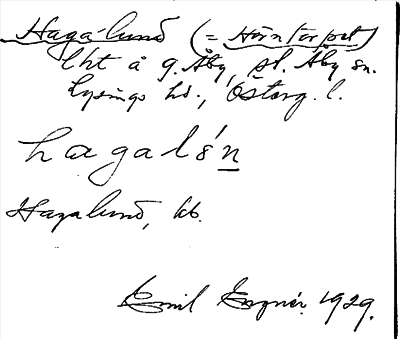 Haga-lund (= Hörntorpet)
lht å g. Åby, st. Åby sn.
Lysings hd., Östergl.
hagalén
Hagalund, kb.
Emil 1929.